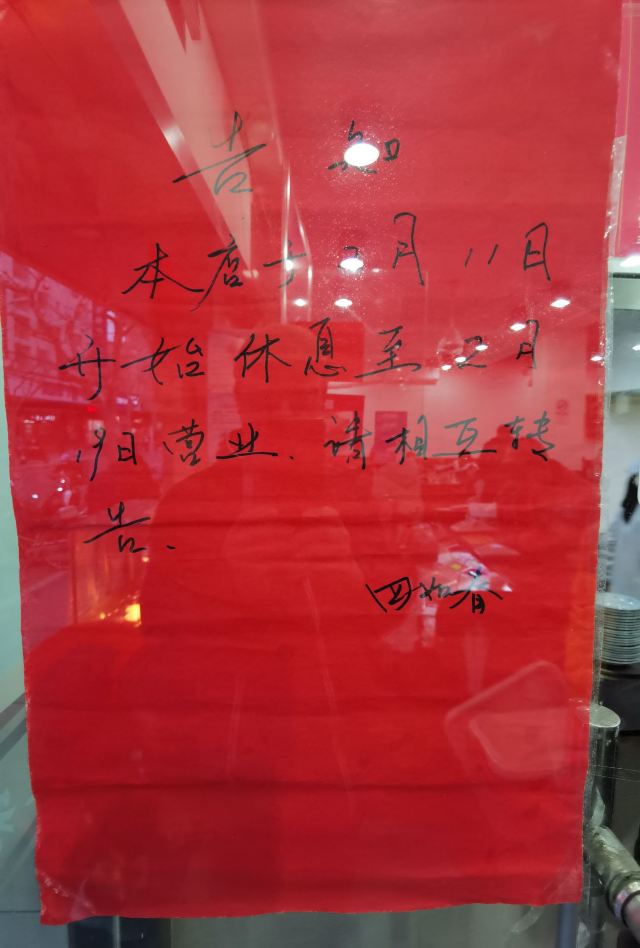 告 知
本店于2月11日
开始休息至2月
19日营业.请相互转
告.
四如春